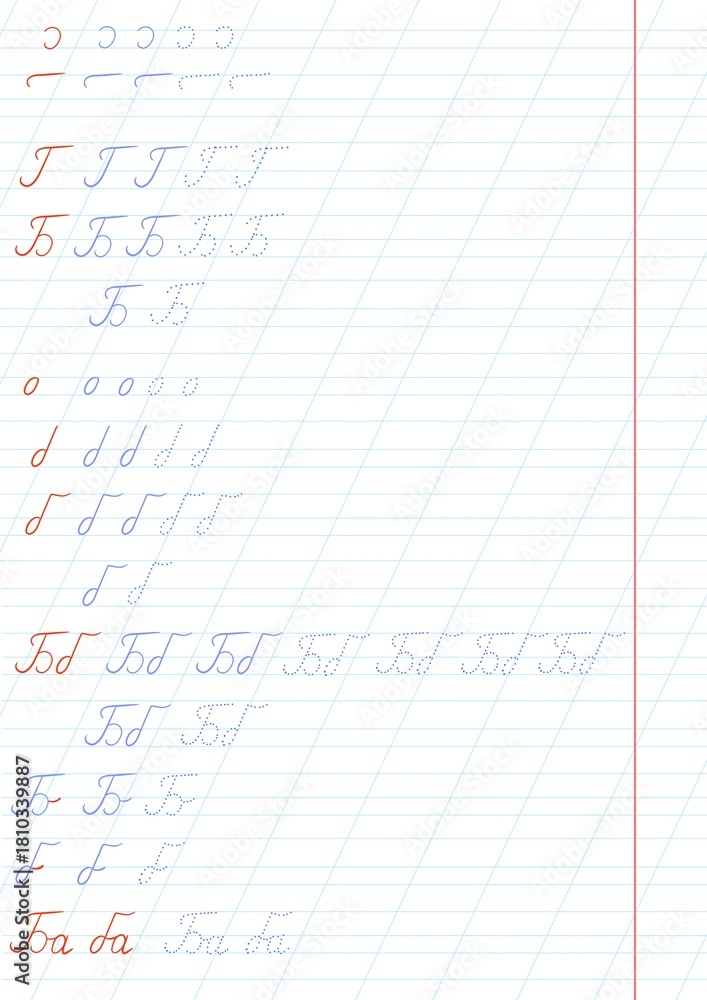 Г Г Г Г Г
Б Б Б Б Б
Б Б
о о о о о
б б б б б
б б
Бб Бб Бб Бб Бб Бб Бб
Бб Бб
Б Б Б
б б б
Ба ба Ба ба
Adobe Stock | #1810339887